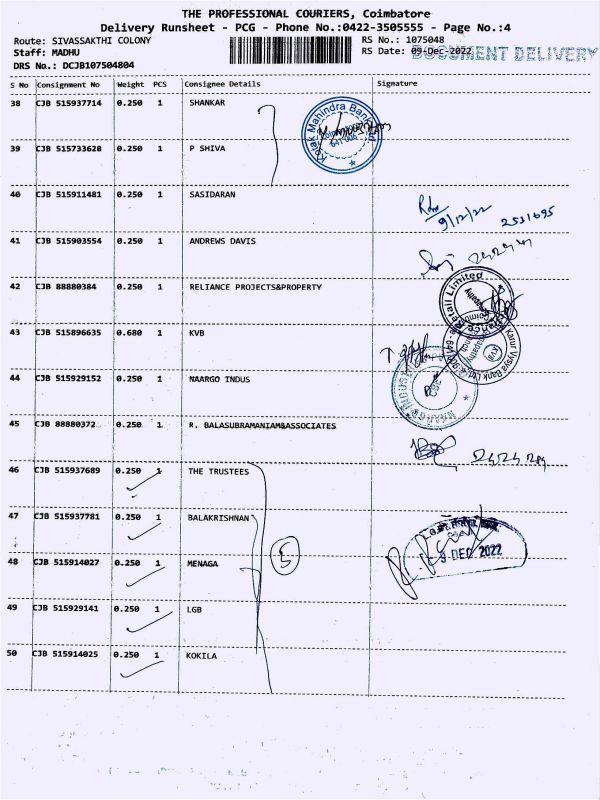 THE PROFESSIONAL COURIERS, Coimbatore
Delivery Runsheet - PCG - Phone No.:0422-3505555 - Page No.:4
Route: SIVASSAKTHI COLONY
RS No.: 1075048
Staff: MADHU
RS Date: 09-Dec-2022
DOCUMENT DELIVERY
DRS No.: DCJB107504804
S No Consignment No Weight PCS Consignee Details Signature
38 CJB 515937714 0.250 1 SHANKAR
Kotak Mahindra Bank Ltd
39 CJB 515733628 0.250 1 P SHIVA
40 CJB 515911481 0.250 1 SASIDARAN
9/12/22
41 CJB 515903554 0.250 1 ANDREWS DAVIS
42 CJB 88880384 0.250 1 RELIANCE PROJECTS&PROPERTY
Reliance Retail Limited
43 CJB 515896635 0.680 1 KVB
Karur Vysya Bank Ltd
KVB
44 CJB 515929152 0.250 1 NAARGO INDUS
45 CJB 88880372 0.250 1 R. BALASUBRAMANIAM&ASSOCIATES
46 CJB 515937689 0.250 1 THE TRUSTEES
47 CJB 515937781 0.250 1 BALAKRISHNAN
5
9 DEC 2022
48 CJB 515914027 0.250 1 MENAGA
49 CJB 515929141 0.250 1 LGB
50 CJB 515914025 0.250 1 KOKILA